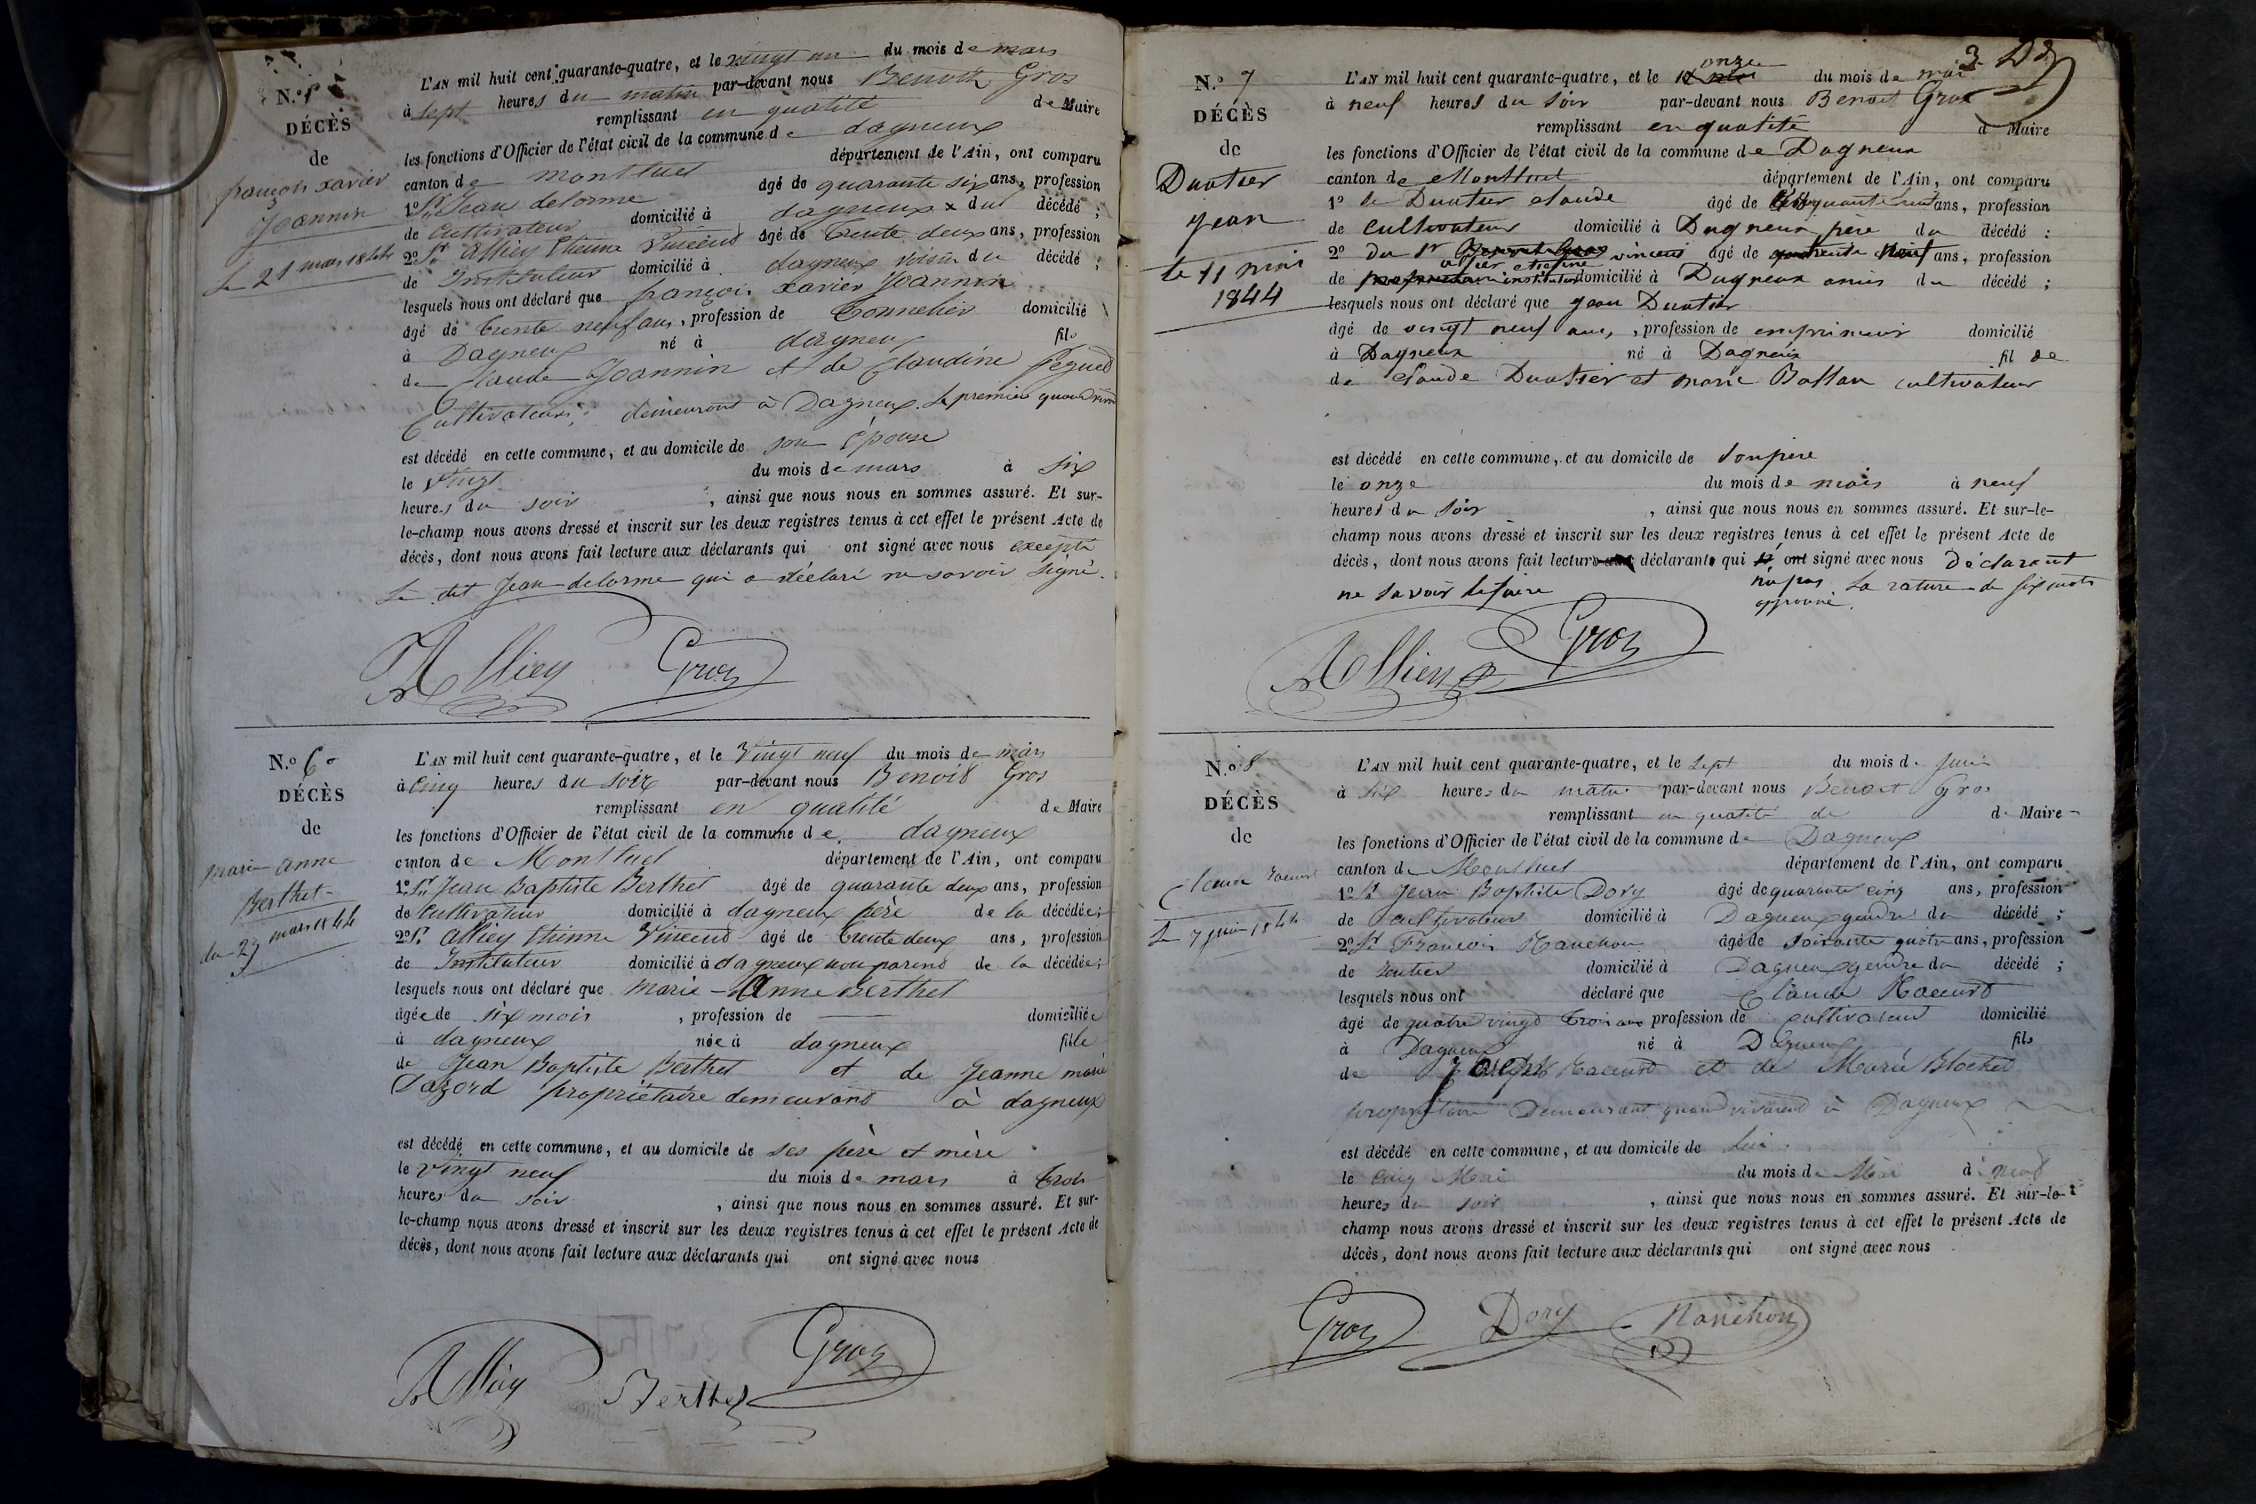 N.º 5
DÉCÈS
de
françois xavier
Joannin
Le 21 mars 1844
L'AN mil huit cent quarante-quatre, et le vingt un du mois de mars
à sept heures du matin par-devant nous Benoit Gros
remplissant en qualité de Maire
les fonctions d'Officier de l'état civil de la commune de dagneux
canton de montluel département de l'Ain, ont comparu
1º Sr Jean delorme âgé de quarante six ans, profession
de Cultivateur domicilié à dagneux du décédé ;
2º Sr Alliey Etienne Vincent âgé de trente deux ans, profession
de Instituteur domicilié à dagneux voisin du décédé ;
lesquels nous ont déclaré que françois xavier Joannin
âgé de trente neuf ans, profession de Tonnelier domicilié
à Dagneux né à dagneux fils
de Claude Joannin et de Claudine
Cultivateurs, demeurant à Dagneux. Le premier quand vivait
est décédé en cette commune, et au domicile de son épouse
le Vingt du mois de mars à six
heures du soir, ainsi que nous nous en sommes assuré. Et sur-
le-champ nous avons dressé et inscrit sur les deux registres tenus à cet effet le présent Acte de
décès, dont nous avons fait lecture aux déclarants qui ont signé avec nous excepté
Le dit Jean delorme qui a déclaré ne savoir signé.
Alliey Gros
N.º 6º
DÉCÈS
de
marie anne
Berthet
du 29 mars 1844
L'AN mil huit cent quarante-quatre, et le Vingt neuf du mois de mars
à cinq heures du soir par-devant nous Benoit Gros
remplissant en qualité de Maire
les fonctions d'Officier de l'état civil de la commune de dagneux
canton de Montluel département de l'Ain, ont comparu
1º Sr Jean Baptiste Berthet âgé de quarante deux ans, profession
de Cultivateur domicilié à dagneux père de la décédée;
2º Sr Alliey Etienne Vincent âgé de trente deux ans, profession
de Instituteur domicilié à dagneux non parent de la décédée;
lesquels nous ont déclaré que Marie-Anne Berthet
âgée de six mois, profession de — domiciliée
à dagneux née à dagneux fille
de Jean Baptiste Berthet et de Jeanne marie
propriétaire demeurant à dagneux
est décédé en cette commune, et au domicile de ses père et mère
le vingt neuf du mois de mars à trois
heures du soir, ainsi que nous nous en sommes assuré. Et sur-
le-champ nous avons dressé et inscrit sur les deux registres tenus à cet effet le présent Acte de
décès, dont nous avons fait lecture aux déclarants qui ont signé avec nous
Alliey Berthet Gros
3
N.º 7
DÉCÈS
de
Duatier
jean
le 11 mai
1844
L'AN mil huit cent quarante-quatre, et le onze du mois de mai
à neuf heures du soir par-devant nous Benoit Gros
remplissant en qualité d Maire
les fonctions d'Officier de l'état civil de la commune de Dagneux
canton de Montluel département de l'Ain, ont comparu
1º le Duatier claude âgé de ans, profession
de cultivateur domicilié à Dagneux père du décédé ;
2º du Sr allier etienne vincent âgé de ans, profession
de instituteur domicilié à Dagneux amis du décédé ;
lesquels nous ont déclaré que jean Duatier
âgé de vingt neuf ans, profession de domicilié
à Dagneux né à Dagneux fil de
de claude Duatier et marie Ballan cultivateur
est décédé en cette commune, et au domicile de son père
le onze du mois de mais à neuf
heures du soir, ainsi que nous nous en sommes assuré. Et sur-le-
champ nous avons dressé et inscrit sur les deux registres tenus à cet effet le présent Acte de
décès, dont nous avons fait lecture déclarants qui ont signé avec nous déclarant
ne savoir le faire
La rature de six mots
approuvé.
Alliey Gros
N.º 8
DÉCÈS
de
Claude
Le 7 juin 1844
L'AN mil huit cent quarante-quatre, et le sept du mois de juin
à six heures du matin par-devant nous Benoit Gros
remplissant en qualité de de Maire
les fonctions d'Officier de l'état civil de la commune de Dagneux
canton de Montluel département de l'Ain, ont comparu
1º Sr Jean Baptiste Dory âgé de quarante cinq ans, profession
de cultivateur domicilié à Dagneux gendre du décédé ;
2º Sr François Nanchon âgé de soixante quatre ans, profession
de rentier domicilié à Dagneux gendre du décédé ;
lesquels nous ont déclaré que Claude
âgé de quatre vingt trois ans profession de cultivateur domicilié
à Dagneux né à Dagneux fils
de Joseph et de Marie Blochet
propriétaire Demeurant quand vivaient à Dagneux
est décédé en cette commune, et au domicile de lui
le cinq du mois de à
heures du soir, ainsi que nous nous en sommes assuré. Et sur-le-
champ nous avons dressé et inscrit sur les deux registres tenus à cet effet le présent Acte de
décès, dont nous avons fait lecture aux déclarants qui ont signé avec nous
Gros Dory Nanchon